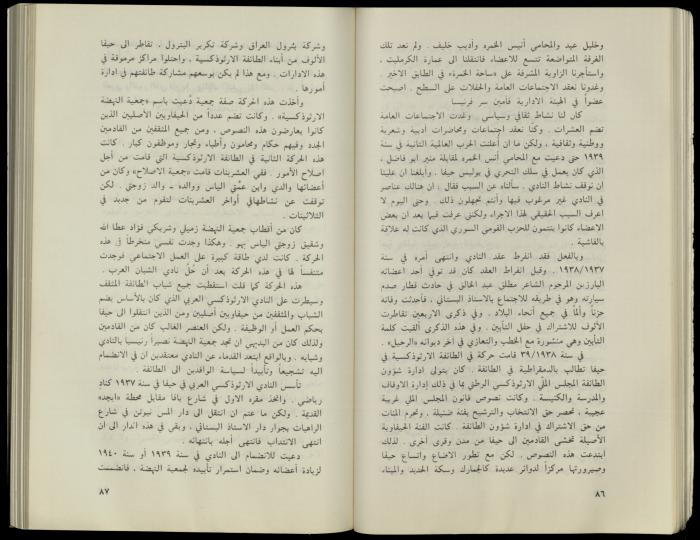 وخليل عيد والمحامي أنيس الخمره وأديب خليف . ولم تعد تلك
الغرفة المتواضعة تتسع للأعضاء فانتقلنا الى عمارة الكرمليت ،
واستأجرنا الزاوية المشرفة على «ساحة الخمرة» في الطابق الاخير .
وغدونا نعقد الاجتماعات العامة والحفلات على السطح . اصبحت
عضواً في الهيئة الادارية فأمين سر فرئيسا
كان لنا نشاط ثقافي وسياسي . وغدت الاجتماعات العامة
تضم العشرات . وكنا نعقد اجتماعات ومحاضرات ادبية وشعرية
ووطنية وثقافية ، ولكن ما ان أعلنت الحرب العالمية الثانية في سنة
١٩٣٩ حتى دعيت مع المحامي أنيس الخمره لمقابلة منير ابو فاضل ،
الذي كان يعمل في سلك التحري في بوليس حيفا . وابلغنا ان علينا
ان نوقف نشاط النادي . سألناه عن السبب فقال : ان هنالك عناصر
في النادي غير مرغوب فيها وأنتم تجهلون ذلك . وحتى اليوم لا
اعرف السبب الحقيقي لهذا الاجراء ولكني عرفت فيما بعد ان بعض
الاعضاء كانوا ينتمون للحزب القومي السوري الذي كانت له علاقة
بالفاشية .
وبالفعل فقد انفرط عقد النادي وانتهى أمره في سنة
١٩٣٨/١٩٣٧ . وقبل انفراط العقد كان قد توفي أحد اعضائه
البارزين المرحوم الشاعر مطلق عبد الخالق في حادث قطار صدم
سيارته وهو في طريقه للاجتماع بالاستاذ البستاني ، فأحدثت وفاته
حزناً وألماً في جميع أنحاء البلاد . وفي ذكرى الاربعين تقاطرت
الألوف للاشتراك في حفل التأبين . وفي هذه الذكرى ألقيت كلمة
التأبين وهي منشورة مع الخطب والتعازي في اخر ديوانه «الرحيل» .
في سنة ٣٩/١٩٣٨ قامت حركة في الطائفة الارثوذكسية في
حيفا تطالب بالدمقراطية في الطائفة . كان يتولى ادارة شؤون
الطائفة المجلس الملّي الارثوذكسي الوطني بما في ذلك إدارة الاوقاف
والمدرسة والكنيسة . وكانت نصوص قانون المجلس الملي غريبة
عجيبة ، تحصر حق الانتخاب والترشيح بفئة ضئيلة ، وتحرم المئات
من حق الاشتراك في ادارة شؤون الطائفة . كانت الفئة الحيفاوية
الأصيلة تخشى القادمين الى حيفا من مدن وقرى أخرى . لذلك
ابتدعت هذه النصوص . لكن مع تطور الاوضاع واتساع حيفا
وصيرورتها مركزاً لدوائر عديدة كالجمارك وسكة الحديد والميناء
٨٦
وشركة بترول العراق وشركة تكرير البترول ، تقاطر الى حيفا
الألوف من أبناء الطائفة الارثوذكسية ، واحتلوا مراكز مرموقة في
هذه الادارات . ومع هذا لم يكن بوسعهم مشاركة طائفتهم في ادارة
أمورها .
وأخذت هذه الحركة صفة جمعية دُعيت باسم «جمعية النهضة
الارثوذكسية» . وكانت تضم عدداً من الحيفاويين الأصلين الذين
كانوا يعارضون هذه النصوص ، ومن جميع المثقفين من القادمين
الجدد وفيهم حكام ومحامون وأطباء وتجار وموظفون كبار . كانت
هذه الحركة الثانية في الطائفة الارثوذكسية التي قامت من أجل
اصلاح الأمور . ففي العشرينات قامت «جمعية الاصلاح» وكان من
أعضائها والدي وابن عمّتي الياس ووالده - والد زوجتي . لكن
توقفت عن نشاطهافي أواخر العشرينات لتقوم من جديد في
الثلاثينات .
كان من أقطاب جمعية النهضة زميلي وشريكي فؤاد عطا الله
وشقيق زوجتي الياس بهو . وهكذا وجدت نفسي منخرطاً في هذه
الحركة . كانت لدي طاقة كبيرة على العمل الاجتماعي فوجدت
متنفساً لها في هذه الحركة بعد أن حُلّ نادي الشبان العرب .
هذه الحركة كما قلت استقطبت جميع شباب الطائفة المثقف
وسيطرت على النادي الارثوذكسي العربي الذي كان بالأساس يضم
الشباب والمثقفين من حيفاويين أصليين ومن الذين انتقلوا الى حيفا
بحكم العمل أو الوظيفة . ولكن العنصر الغالب كان من القادمين
ولذلك كان من البديهي ان تجد جمعية النهضة نصيراً رئيسيا بالنادي
وشبابه . وبالواقع ابتعد القدماء عن النادي معتقدين ان في الانضمام
اليه تشجيعاً وتأييداً لسياسة الوافدين الى الطائفة .
تأسس النادي الارثوذكسي العربي في حيفا في سنة ١٩٣٧ كنادٍ
رياضي . واتخذ مقره الاول في شارع يافا مقابل محطة «ايجد»
القديمة . ولكن ما عتم ان انتقل الى دار المس نيوتن في شارع
الراهبات بجوار دار الاستاذ البستاني ، وبقي في هذه الدار الى ان
انتهى الانتداب فانتهى أجله بانتهائه .
دعيت للانضمام الى النادي في سنة ١٩٣٩ أو سنة ١٩٤٠
لزيادة أعضائه وضمان استمرار تأييده لجمعية النهضة ، فانضممت
٨٧